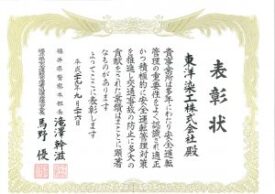 表彰状
東洋染工株式会社殿
貴事業所は多年にわたり安全運転
管理の重要性をよく認識され適正
かつ積極的に安全運転管理対策
を推進し交通事故の防止に多大の
貢献をされた業績はまことに顕著
なものがあります
よってここに表彰します
平成二十九年九月二十六日
福井県警察本部長 滝澤幹滋
馬野優